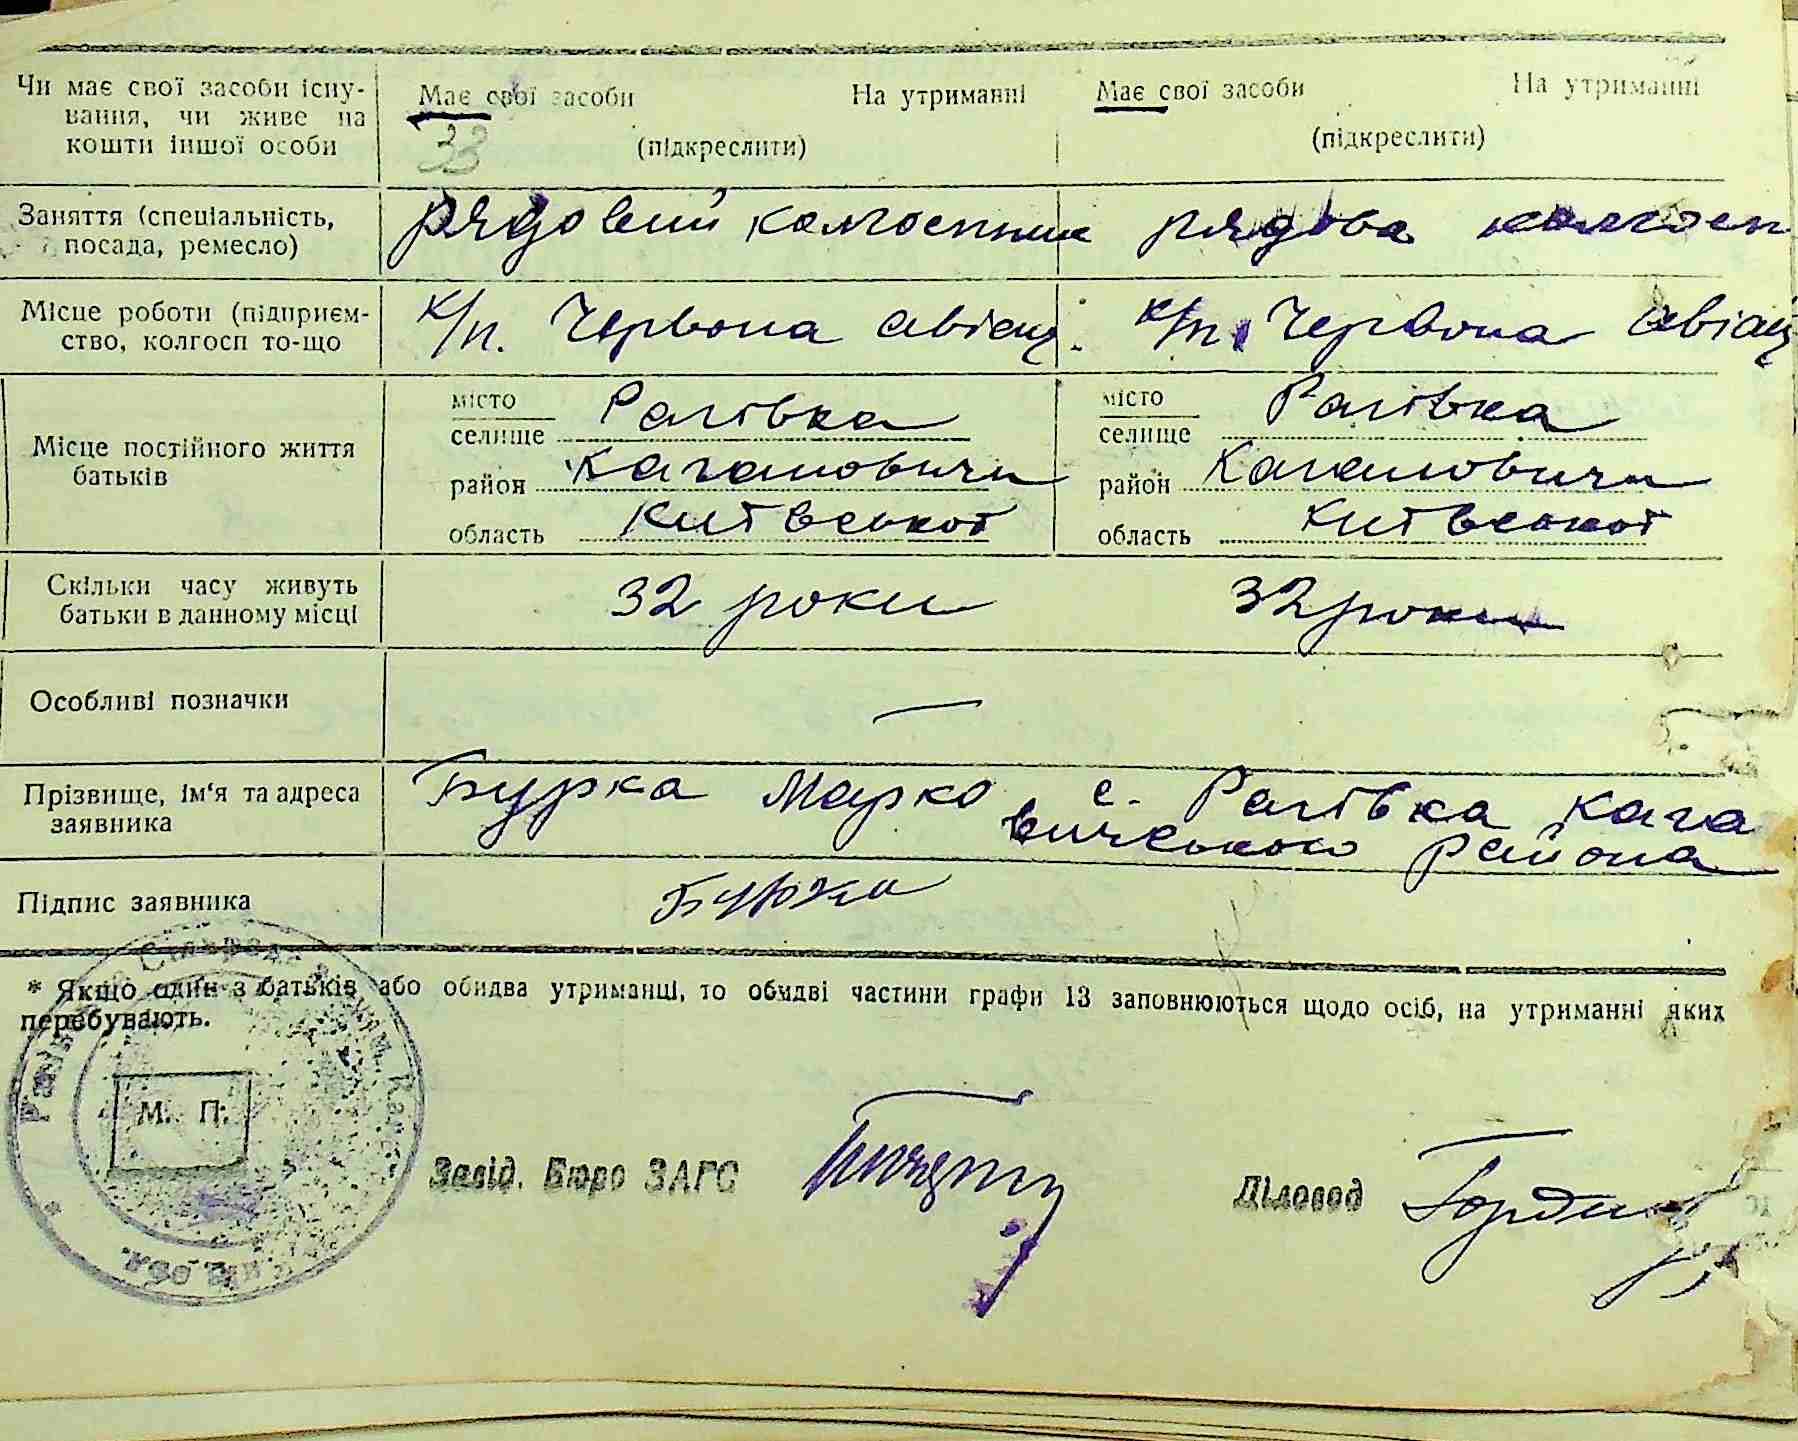 Чи має свої засоби існу-
вання, чи живе на
кошти іншої особи
Має свої засоби На утриманні
33 (підкреслити)
Має свої засоби На утриманні
(підкреслити)
Заняття (спеціальність,
посада, ремесло)
рядовий колгоспник рядова колгосп
Місце роботи (підприєм-
ство, колгосп то-що
к/п. Червона авіац. к/п. Червона авіац
Місце постійного життя
батьків
місто
селище Рагівка
район Кагановичи
область Київської
місто
селище Рагівка
район Кагановичи
область Київської
Скільки часу живуть
батьки в данному місці
32 роки 32 роки
Особливі позначки
—
Прізвище, ім'я та адреса
заявника
Бурка Марко с. Рагівка Кага
вичського района
Підпис заявника
Бурка
* Якщо один з батьків або обидва утриманці, то обидві частини графи 13 заповнюються щодо осіб, на утриманні яких
перебувають.
М. П.
Завід. Бюро ЗАГС
Діловод